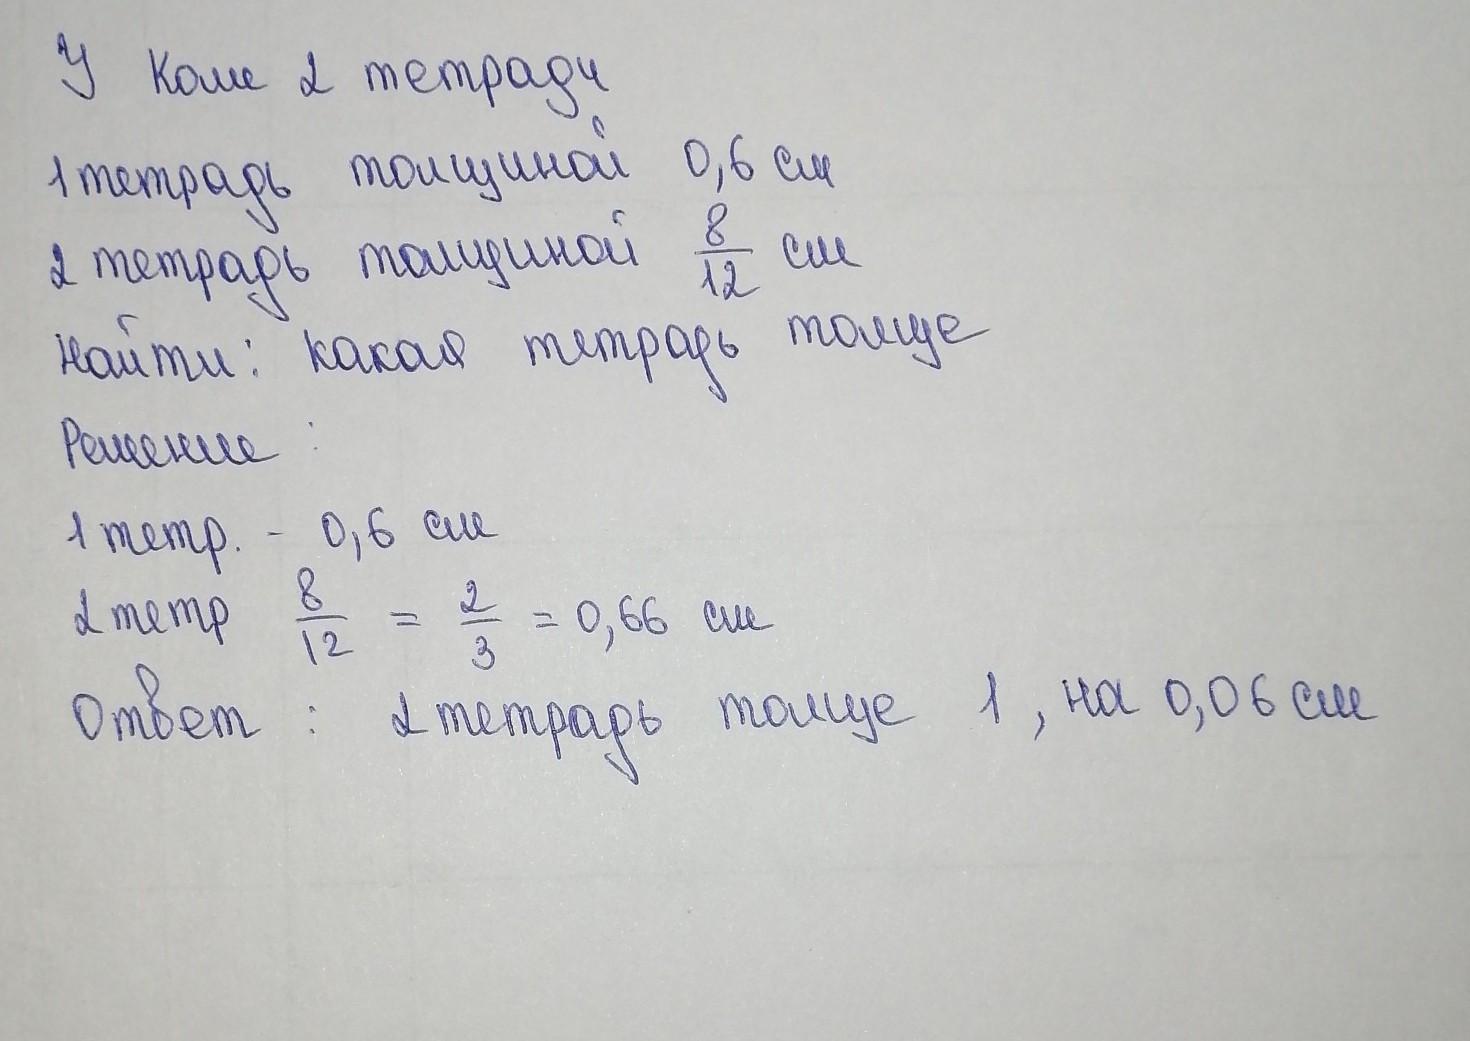 У Коли 2 тетради
1 тетрадь толщиной 0,6 см
2 тетрадь толщиной 8/12 см
Найти: какая тетрадь толще
Решение:
1 тетр. - 0,6 см
2 тетр 8/12 = 2/3 = 0,66 см
Ответ: 2 тетрадь толще 1, на 0,06 см